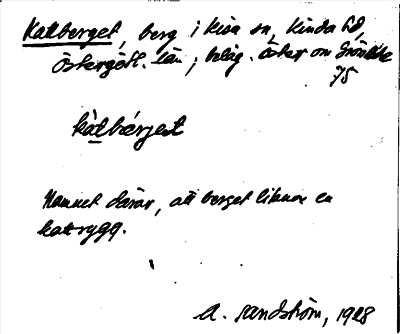 Katberget, berg i Kisa sn, Kinda hd,
Östergötl. län; beläg. öster om
75
kàtbærjet
Namnet därav, att berget liknar en
kattrygg.
A. Sandström, 1928